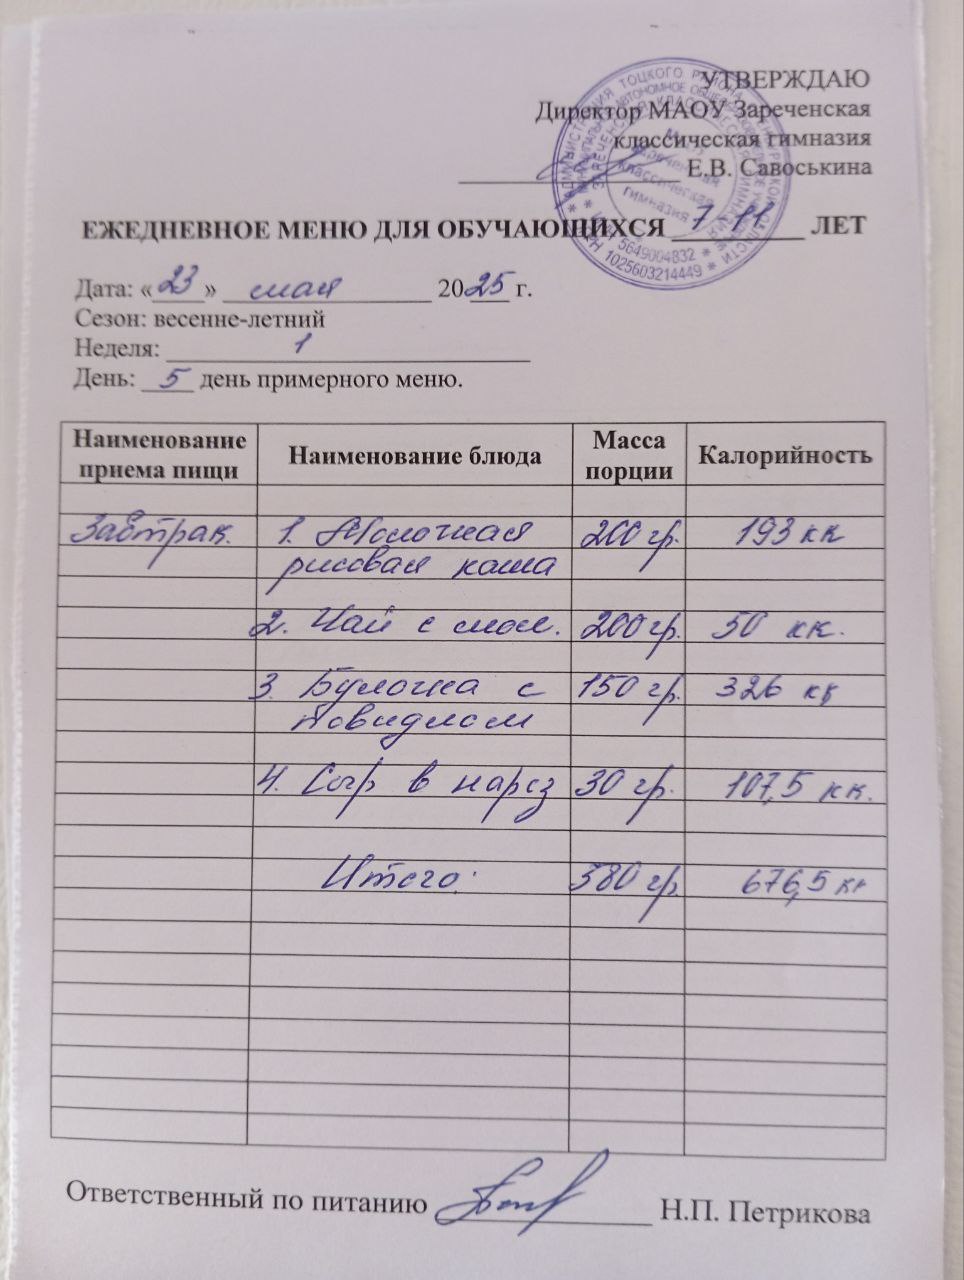 УТВЕРЖДАЮ
Директор МАОУ Зареченская
классическая гимназия
Е.В. Савоськина
ЕЖЕДНЕВНОЕ МЕНЮ ДЛЯ ОБУЧАЮЩИХСЯ 7-11 ЛЕТ
Дата: «23» мая 2025 г.
Сезон: весенне-летний
Неделя: 1
День: 5 день примерного меню.
Наименование приема пищи Наименование блюда Масса порции Калорийность
Завтрак. 1. Молочная 200 гр. 193 кк
рисовая каша
2. Чай с мол. 200 гр. 50 кк.
3. Булочка с 150 гр. 326 кк
повидлом
4. Сыр в нарез 30 гр. 107,5 кк.
Итого: 580 гр. 676,5 кк
Ответственный по питанию Н.П. Петрикова
ИНН 5649004832
ОГРН 1025603214449